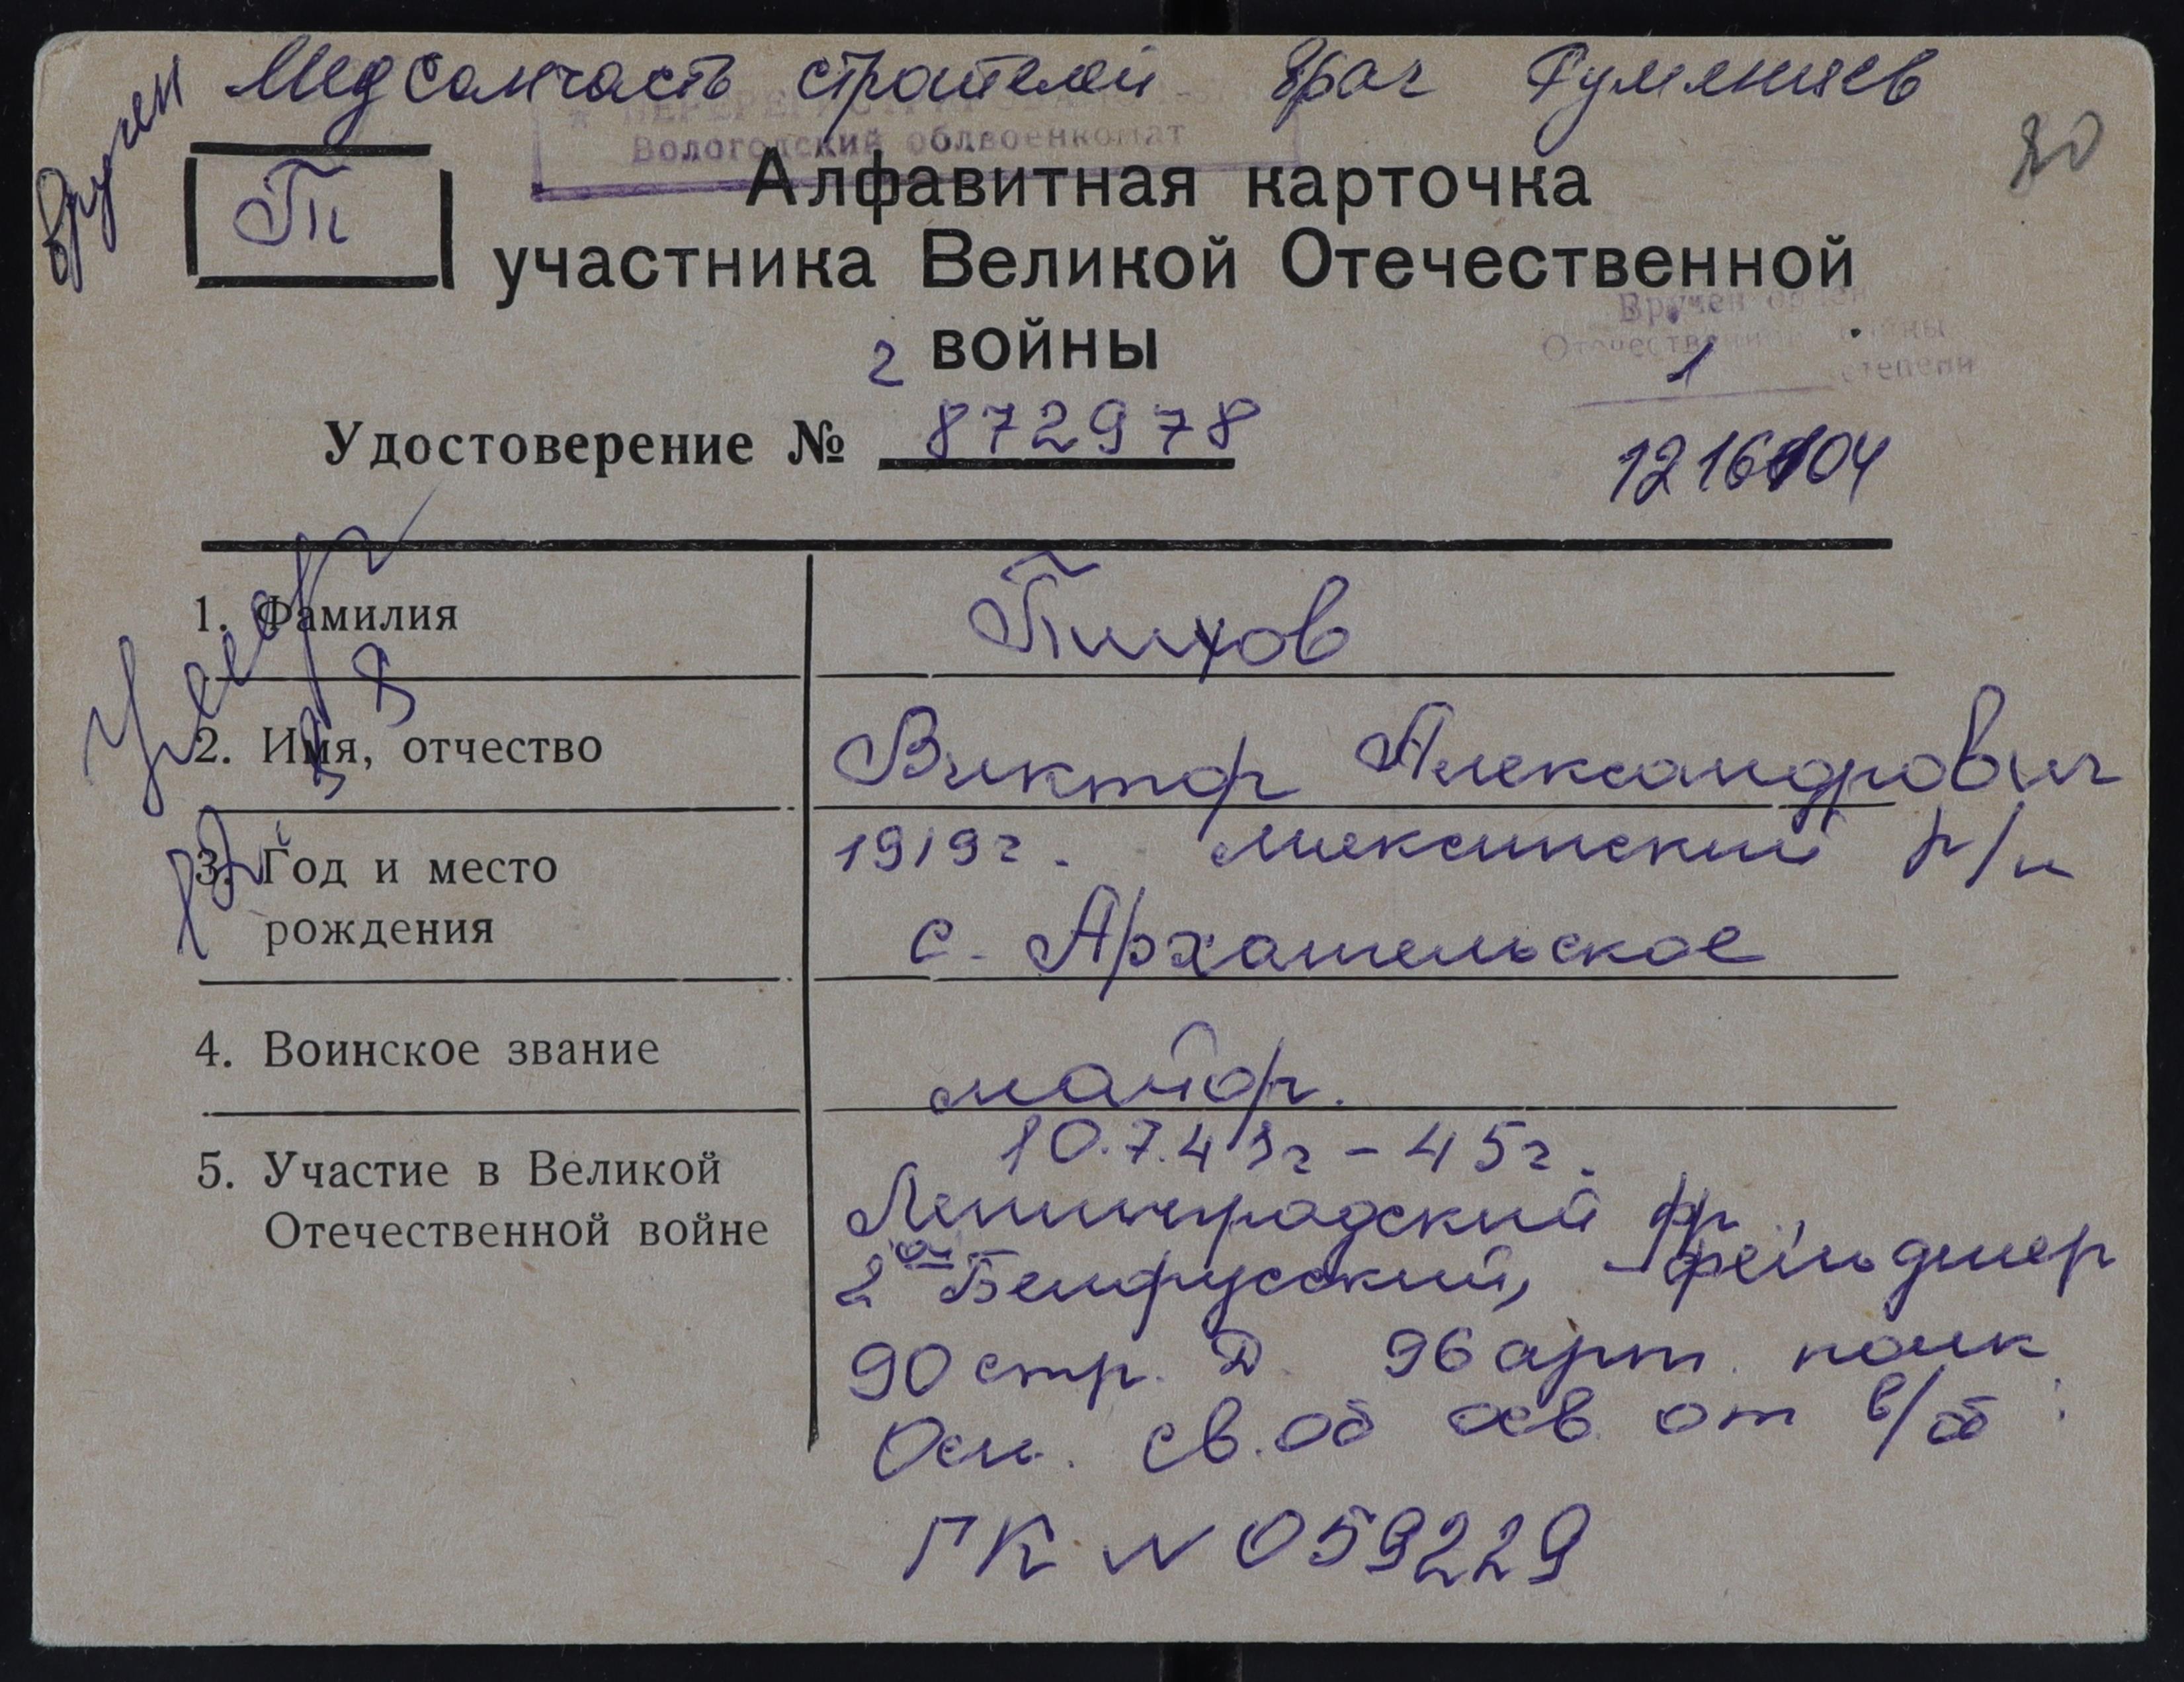 Медсанчасть строителей врач Румянцев
вручен
Вологодский облвоенкомат
80
Пи
Алфавитная карточка
участника Великой Отечественной
войны
Вручен орден
Отечественной войны
1 степени
г
Удостоверение № 872978
1216104
1. Фамилия Пихов
2. Имя, отчество Виктор Александрович
3. Год и место рождения 1919г. Мяксинский р/н
с. Архангельское
4. Воинское звание майор.
5. Участие в Великой Отечественной войне 10.7.41г - 45г.
Ленинградский фр
2ой Белорусский, - фельдшер
90 стр. Д. 96 арт. полк
Осн. св. об осв. от в/об
ГК N 059229